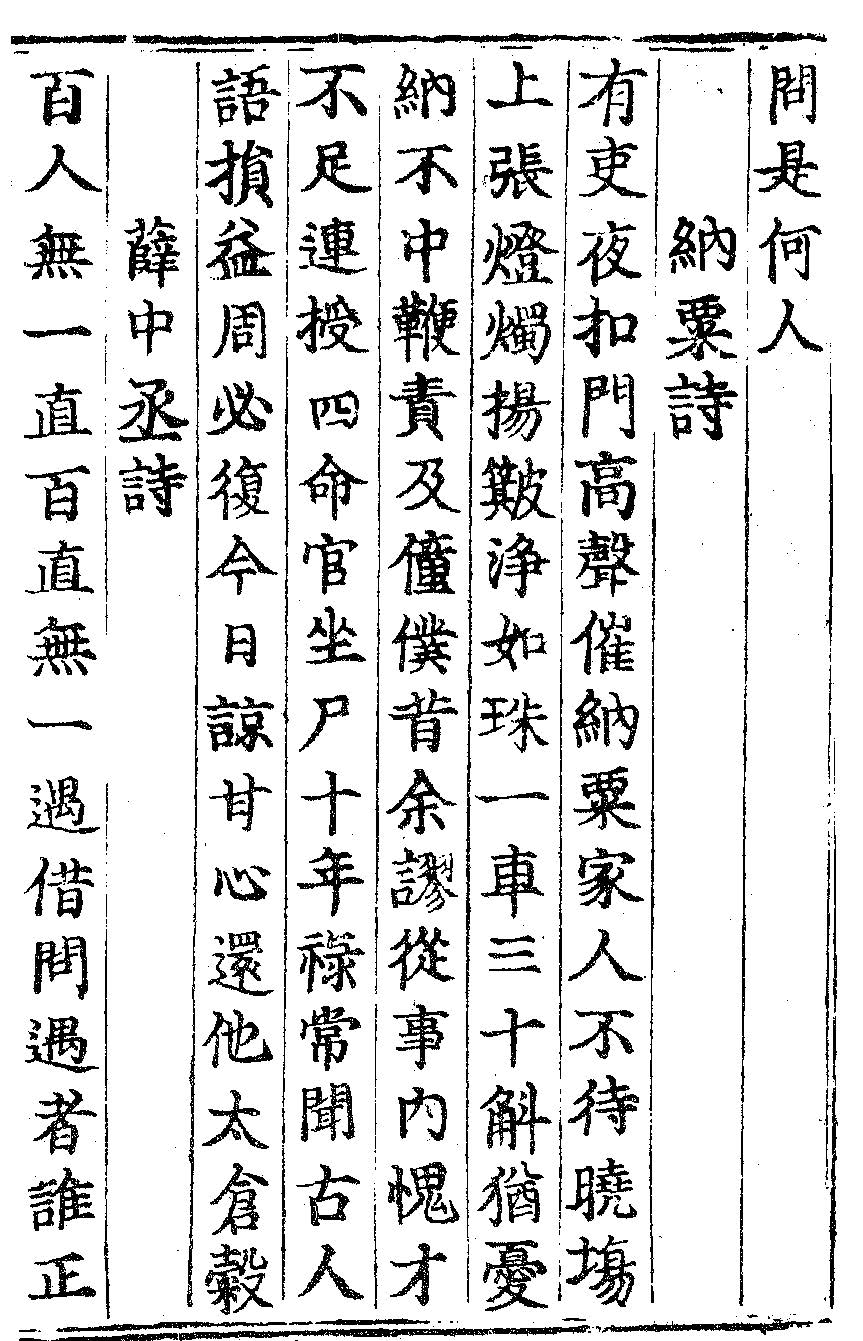 問是何人
納粟詩
有吏夜扣門高聲催納粟家人不待曉塲
上張燈燭揚簸淨如珠一車三十斛猶憂
納不中鞭責及僮僕昔余謬從事內愧才
不足連授四命官坐尸十年祿常聞古人
語損益周必復今日諒甘心還他太倉穀
薛中丞詩
百人無一直百直無一遇借問遇者誰正